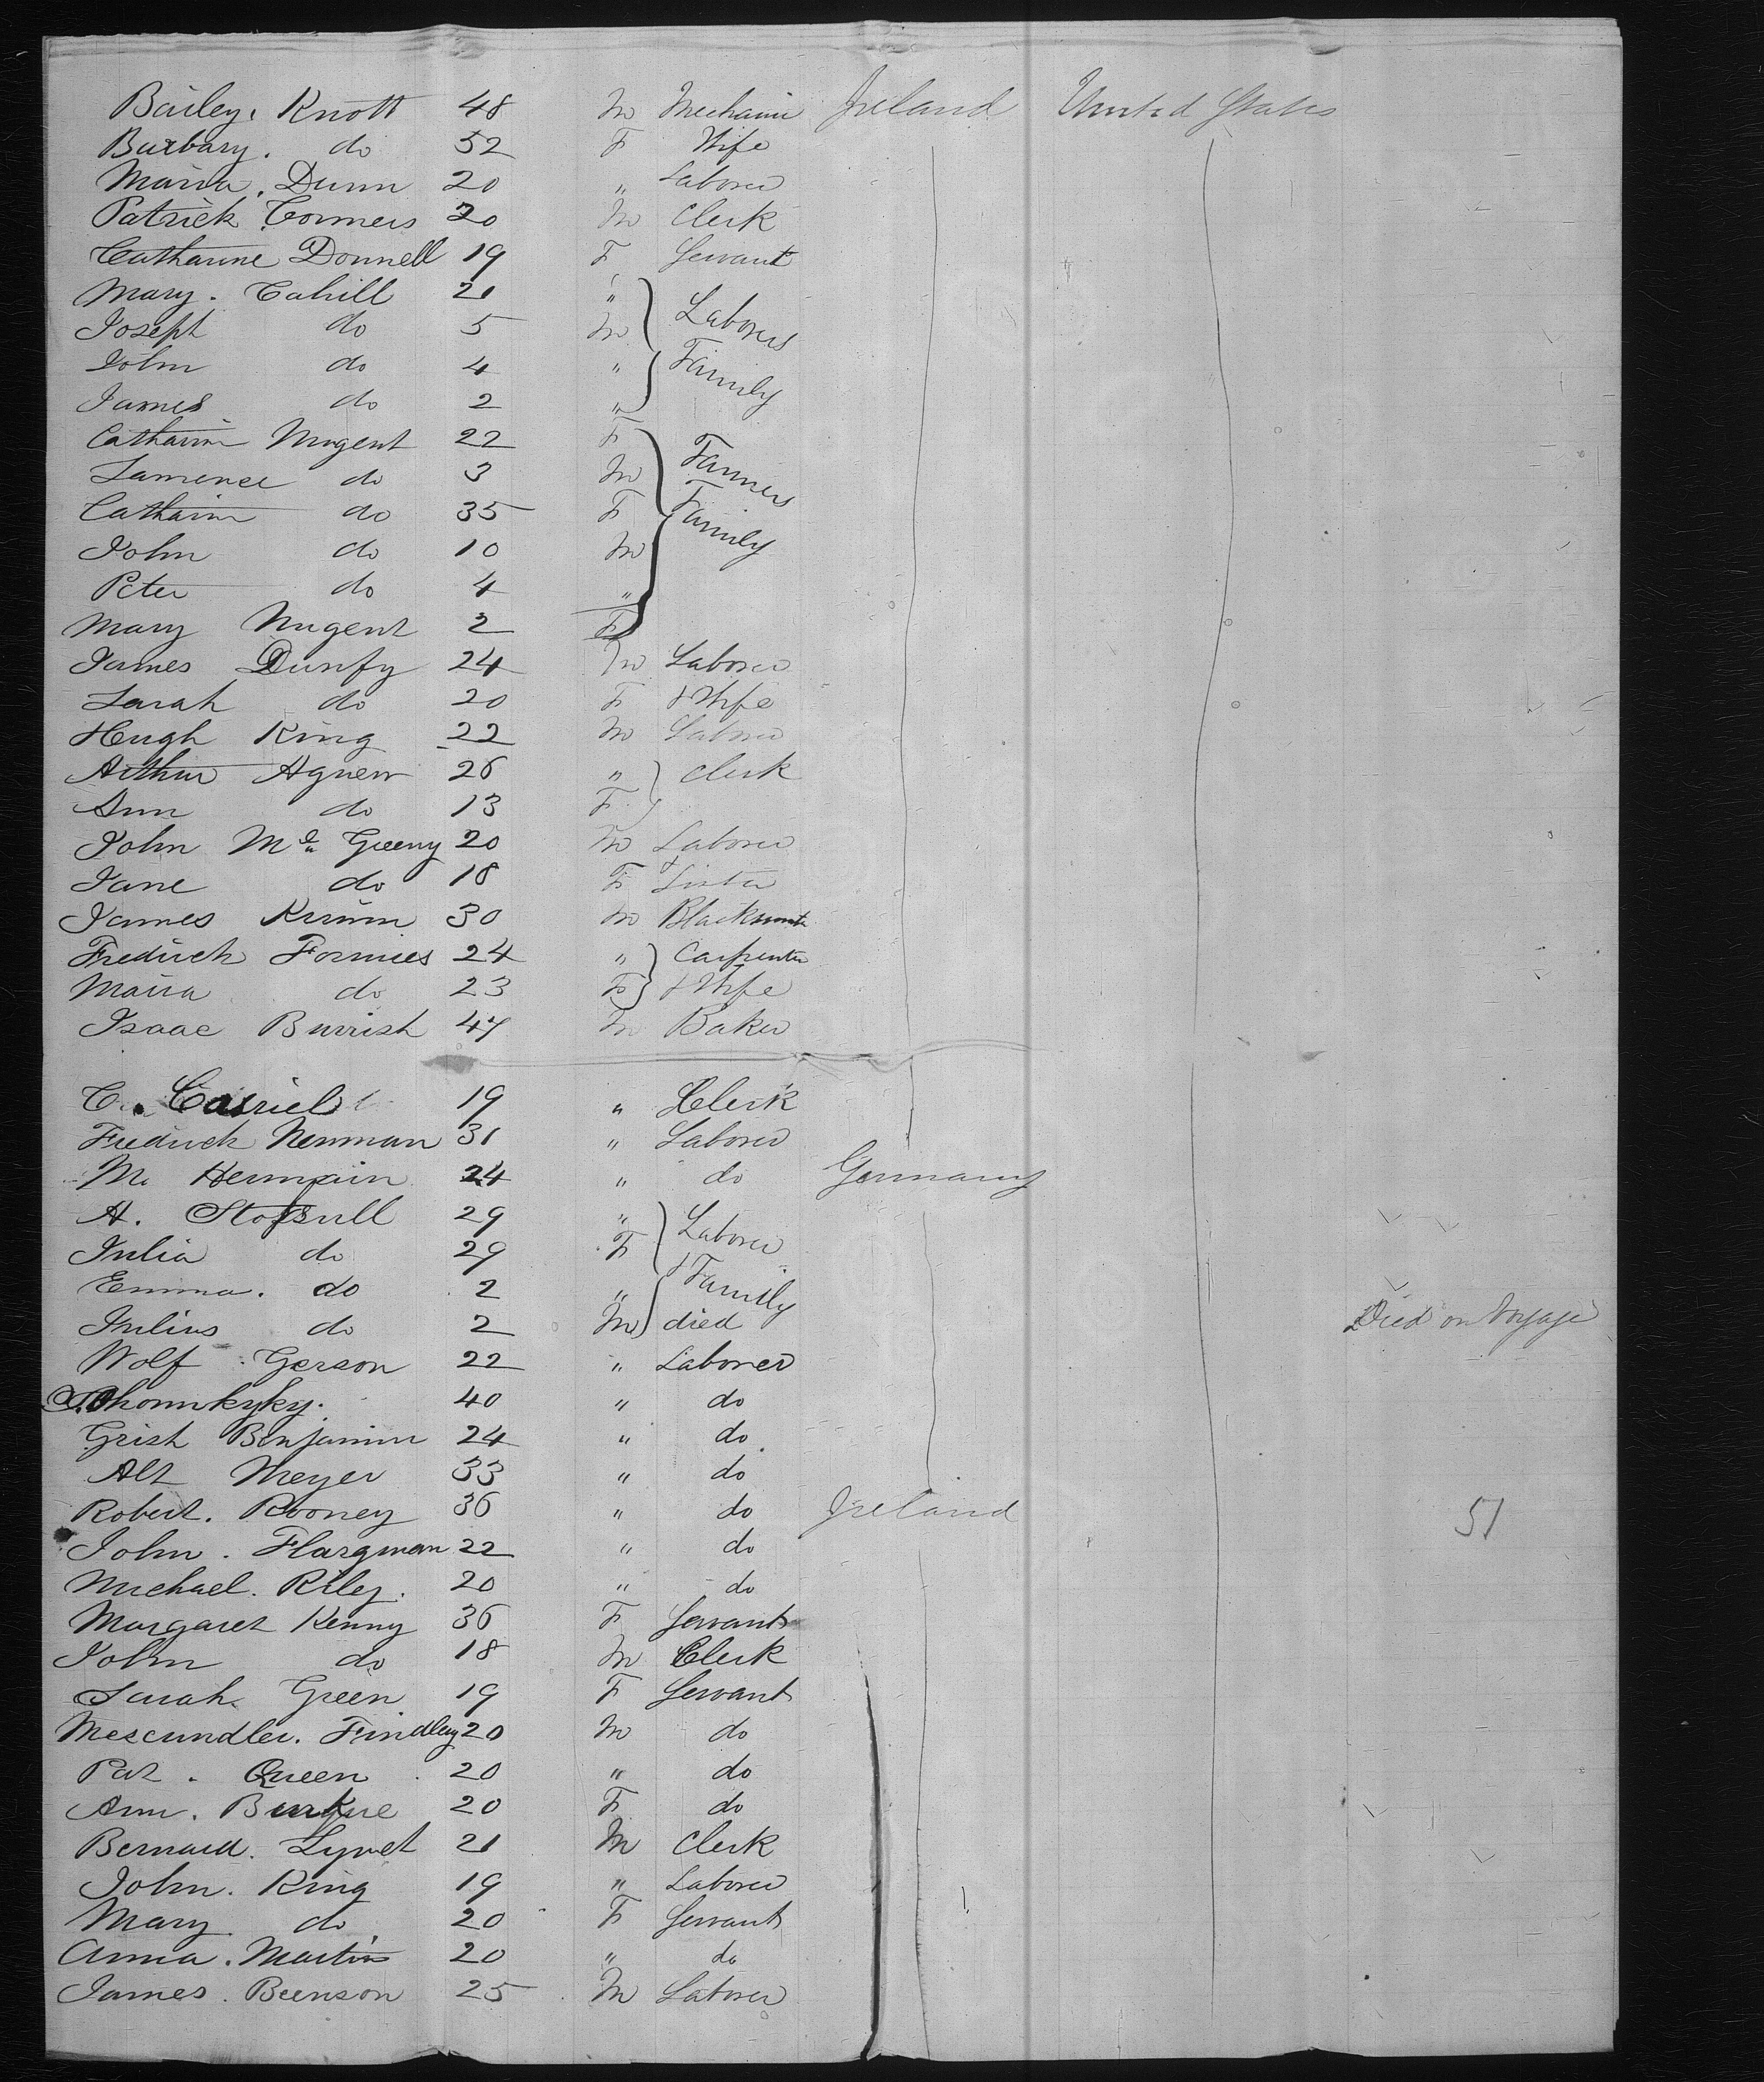 Bailey. Knott 48 M Mechanic Ireland United States
Barbary. do 52 F Wife
Maria. Dunn 20 " Laborer
Patrick Conners 20 M Clerk
Catharine Donnell 19 F Servant
Mary. Cahill 21 "
Joseph do 5 M Laborers
John do 4 " Family
James do 2 "
Catharin Nugent 22 F
Lawrence do 3 M Farmers
Catharin do 35 F Family
John do 10 M
Peter do 4 "
Mary Nugent 2 F
James Dunfy 24 M Laborer
Sarah do 20 F & Wife
Hugh King 22 M Laborer
Arthur Agnew 26 " Clerk
Ann do 13 F
John Mc Greeny 20 M Laborer
Jane do 18 F Sister
James 30 M Blacksmith
Fredrick Formies 24 " Carpenter
Maria do 23 F & Wife
Isaac Burrish 47 M Baker
C. Casriel 19 " Clerk
Fredrick Newman 31 " Laborer
M. Hermain 24 " do Germany
A. 29 " Laborer
Julia do 29 F
Emma. do 2 " & Family
Julius do 2 M died Died on Voyage
Wolf Gerson 22 " Laborer
40 " do
Grish Benjamin 24 " do
Alt Meyer 33 " do
Robert. Rooney 36 " do Ireland 51
John. Flargman 22 " do
Michael. Riley. 20 " do
Margaret Kenny 36 F Servant
John do 18 M Clerk
Sarah Green 19 F Servant
Findley 20 M do
Pat. Queen 20 " do
Ann. Burke 20 F do
Bernard. Lynch 21 M Clerk
John. King 19 " Laborer
Mary do 20 F Servant
Anna. Martin 20 " do
James. Beenson 25 M Laborer